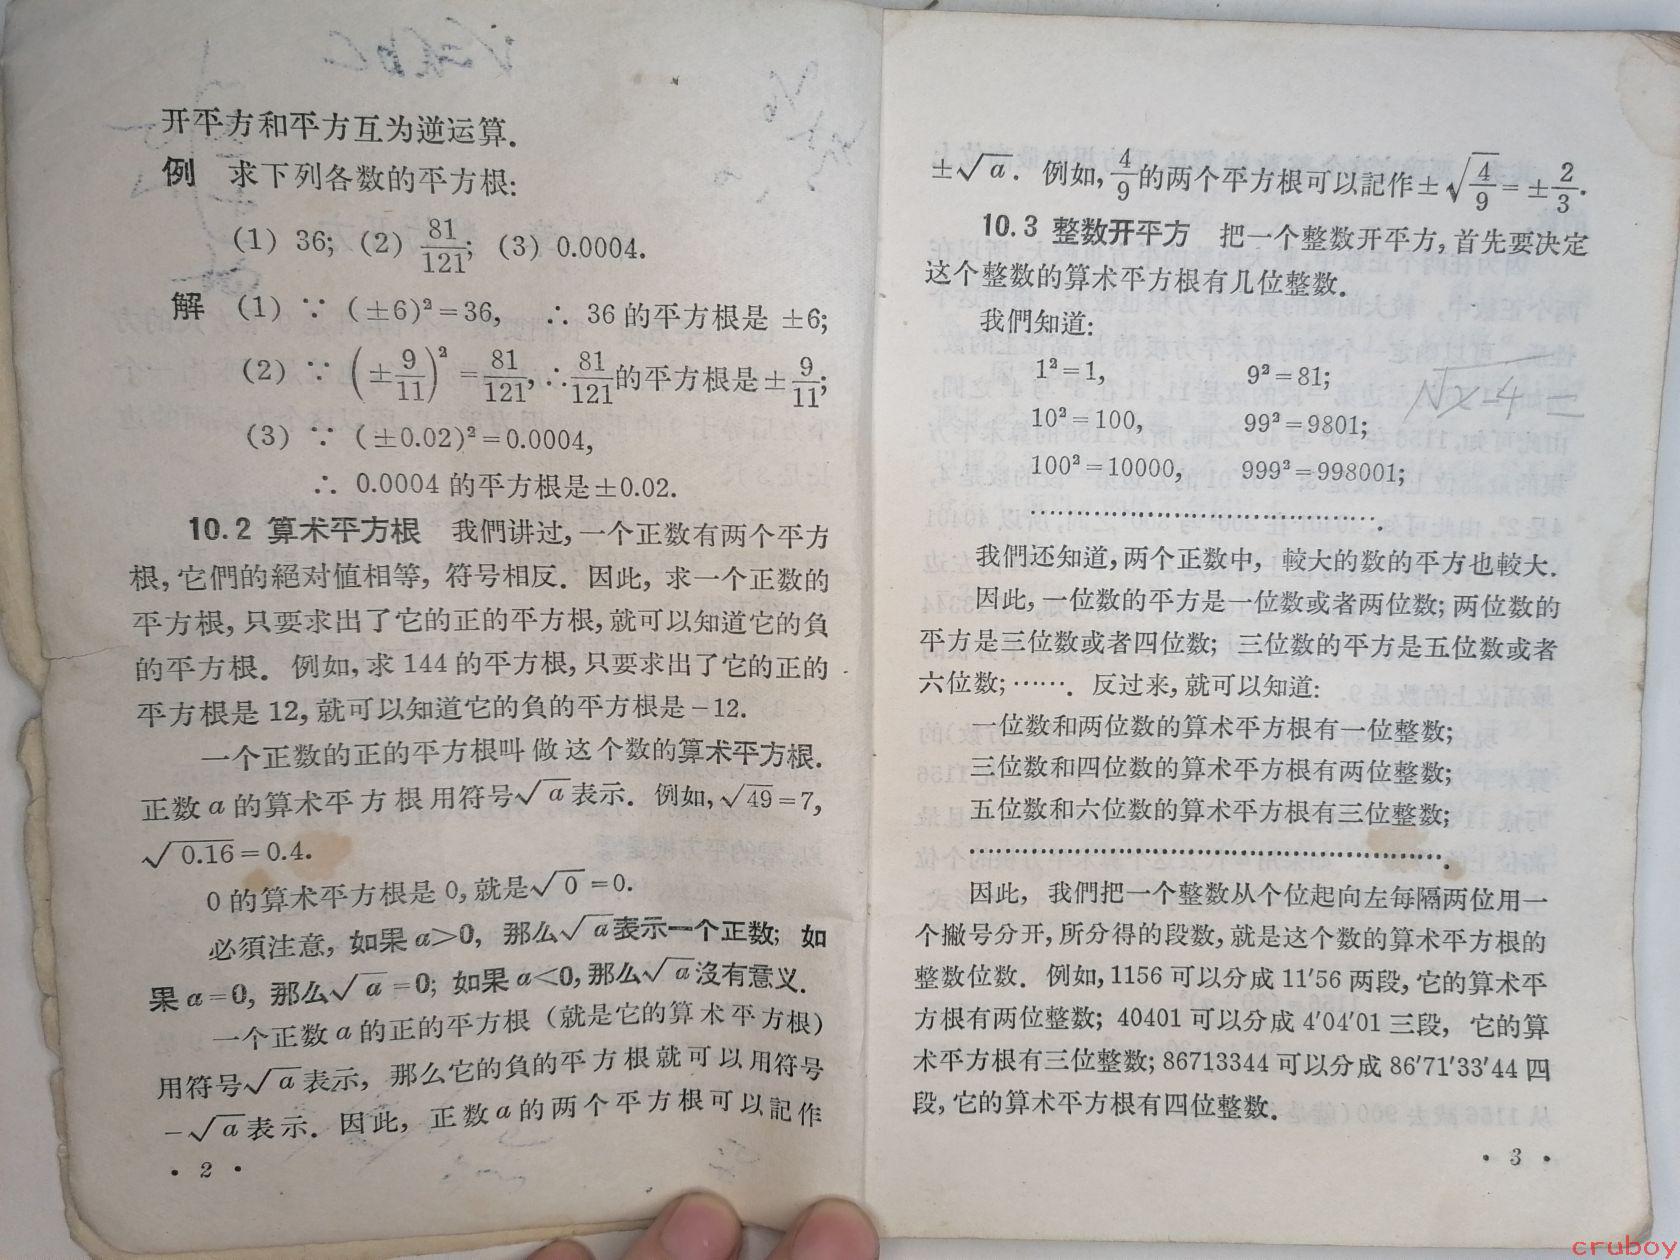 开平方和平方互为逆运算.
例 求下列各数的平方根:
(1) 36; (2) 81/121; (3) 0.0004.
解 (1) ∵ (±6)²=36, ∴ 36的平方根是 ±6;
(2) ∵ (±9/11)²=81/121, ∴ 81/121的平方根是±9/11;
(3) ∵ (±0.02)²=0.0004,
∴ 0.0004的平方根是±0.02.
10.2 算术平方根 我們讲过,一个正数有两个平方
根,它們的絕对值相等,符号相反. 因此,求一个正数的
平方根,只要求出了它的正的平方根,就可以知道它的負
的平方根. 例如,求144的平方根,只要求出了它的正的
平方根是12,就可以知道它的負的平方根是-12.
一个正数的正的平方根叫做这个数的算术平方根.
正数a的算术平方根用符号√a表示. 例如,√49=7,
√0.16=0.4.
0的算术平方根是0,就是√0=0.
必須注意,如果a>0,那么√a表示一个正数;如
果a=0,那么√a=0;如果a<0,那么√a沒有意义.
一个正数a的正的平方根(就是它的算术平方根)
用符号√a表示,那么它的負的平方根就可以用符号
-√a表示. 因此,正数a的两个平方根可以記作
· 2 ·
±√a. 例如,4/9的两个平方根可以記作±√4/9=±2/3.
10.3 整数开平方 把一个整数开平方,首先要决定
这个整数的算术平方根有几位整数.
我們知道:
1²=1, 9²=81;
10²=100, 99²=9801;
100²=10000, 999²=998001;
…………………………….
我們还知道,两个正数中,較大的数的平方也較大.
因此,一位数的平方是一位数或者两位数;两位数的
平方是三位数或者四位数;三位数的平方是五位数或者
六位数;……. 反过来,就可以知道:
一位数和两位数的算术平方根有一位整数;
三位数和四位数的算术平方根有两位整数;
五位数和六位数的算术平方根有三位整数;
…………………………………….
因此,我們把一个整数从个位起向左每隔两位用一
个撇号分开,所分得的段数,就是这个数的算术平方根的
整数位数. 例如,1156可以分成11′56两段,它的算术平
方根有两位整数;40401可以分成4′04′01三段,它的算
术平方根有三位整数;86713344可以分成86′71′33′44四
段,它的算术平方根有四位整数.
· 3 ·
cruboy